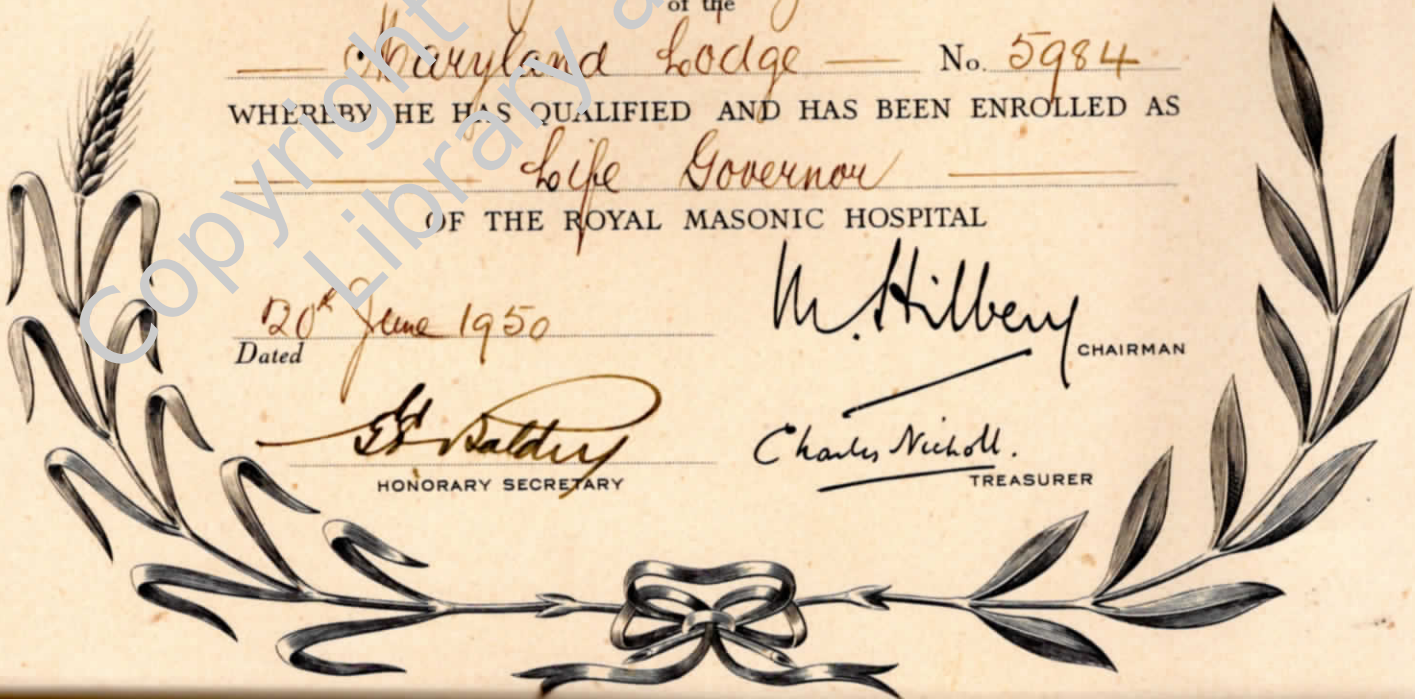 of the
Maryland Lodge No. 5984
WHEREBY HE HAS QUALIFIED AND HAS BEEN ENROLLED AS
Life Governor
OF THE ROYAL MASONIC HOSPITAL
20th June 1950
Dated
M. Hilbery
CHAIRMAN
Baldry
HONORARY SECRETARY
Charles Nicholl.
TREASURER
Copyright
Library